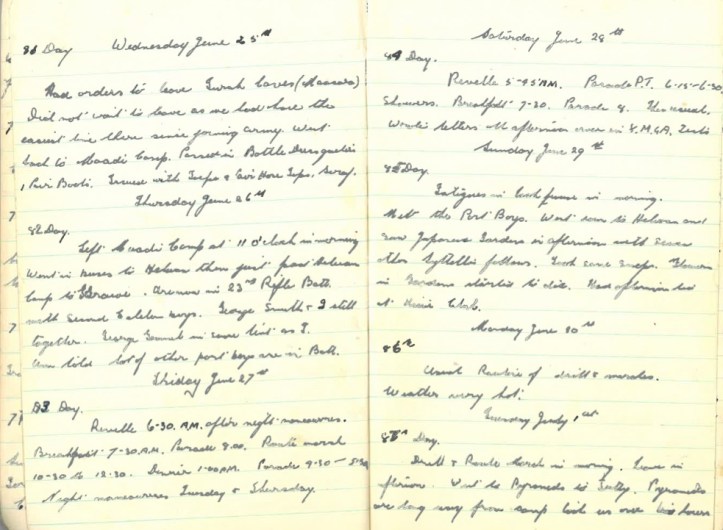 81 Day Wednesday June 25th
Had orders to leave Turah Caves (Maasara)
Did not want to leave as we had here the
easiest time there since joining army. Went
back to Maadi Camp. Passed in Battle Dress
1 Pair Boots. Issued with &
Thursday June 26th
82 Day.
Left Maadi Camp at 11 o'clock in morning
Went in buses to Helwan then just past Helwan
Camp to . Are now in 23rd Rifle Batt.
with several boys. George Smith & I still
together. George in same tent as I.
Am told lot of other port boys are in Batt.
Friday June 27th
83 Day.
Revelle 6-30. A.M. after night manouvres.
Breakfast 7-30 A.M. Parade 8.00. Route march
10-30 to 12.30. Dinner 1-00 P.M. Parade
Night manouvres Tuesday & Thursday.
Saturday June 28th
84 Day.
Revelle 5-45 A.M. Parade P.T. 6-15-6-30,
Showers. Breakfast 7-30. Parade 8. As usual.
Wrote letters all afternoon over in Y.M.C.A.
Sunday June 29th
85 Day.
Fatigues in in morning.
Met the Port Boys. Went down to Helwan and
saw Japanese Gardens in afternoon with some
other fellows. Took some snaps. Flowers
in Gardens started to die. Had afternoon tea
at Club.
Monday June 30th
86th
Usual Routine of drill & marches.
Weather very hot.
Tuesday July 1st
87th Day.
Drill & Route March in morning. Leave in
afternoon. Went to Pyramids in . Pyramids
are long way from camp took us over two hours